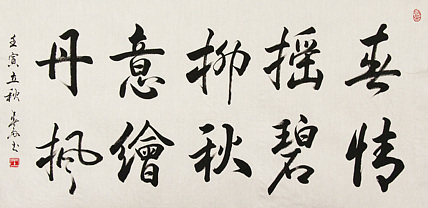 春情
摇碧
柳秋
意繪
丹楓
壬寅立秋